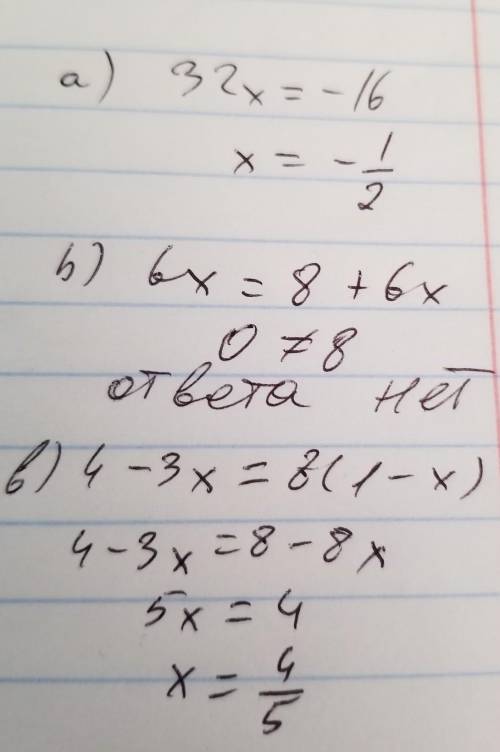 а) 32x = -16
x = -1/2
b) 6x = 8 + 6x
0 ≠ 8
ответа нет
в) 4 - 3x = 8(1 - x)
4 - 3x = 8 - 8x
5x = 4
x = 4/5